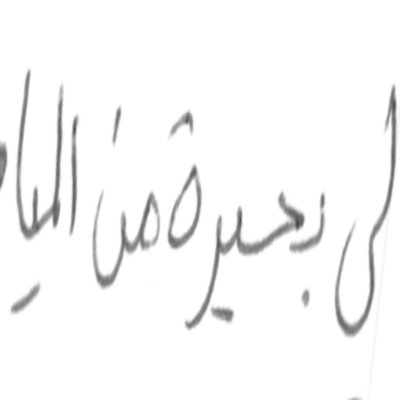 لى بحيرة من الميا